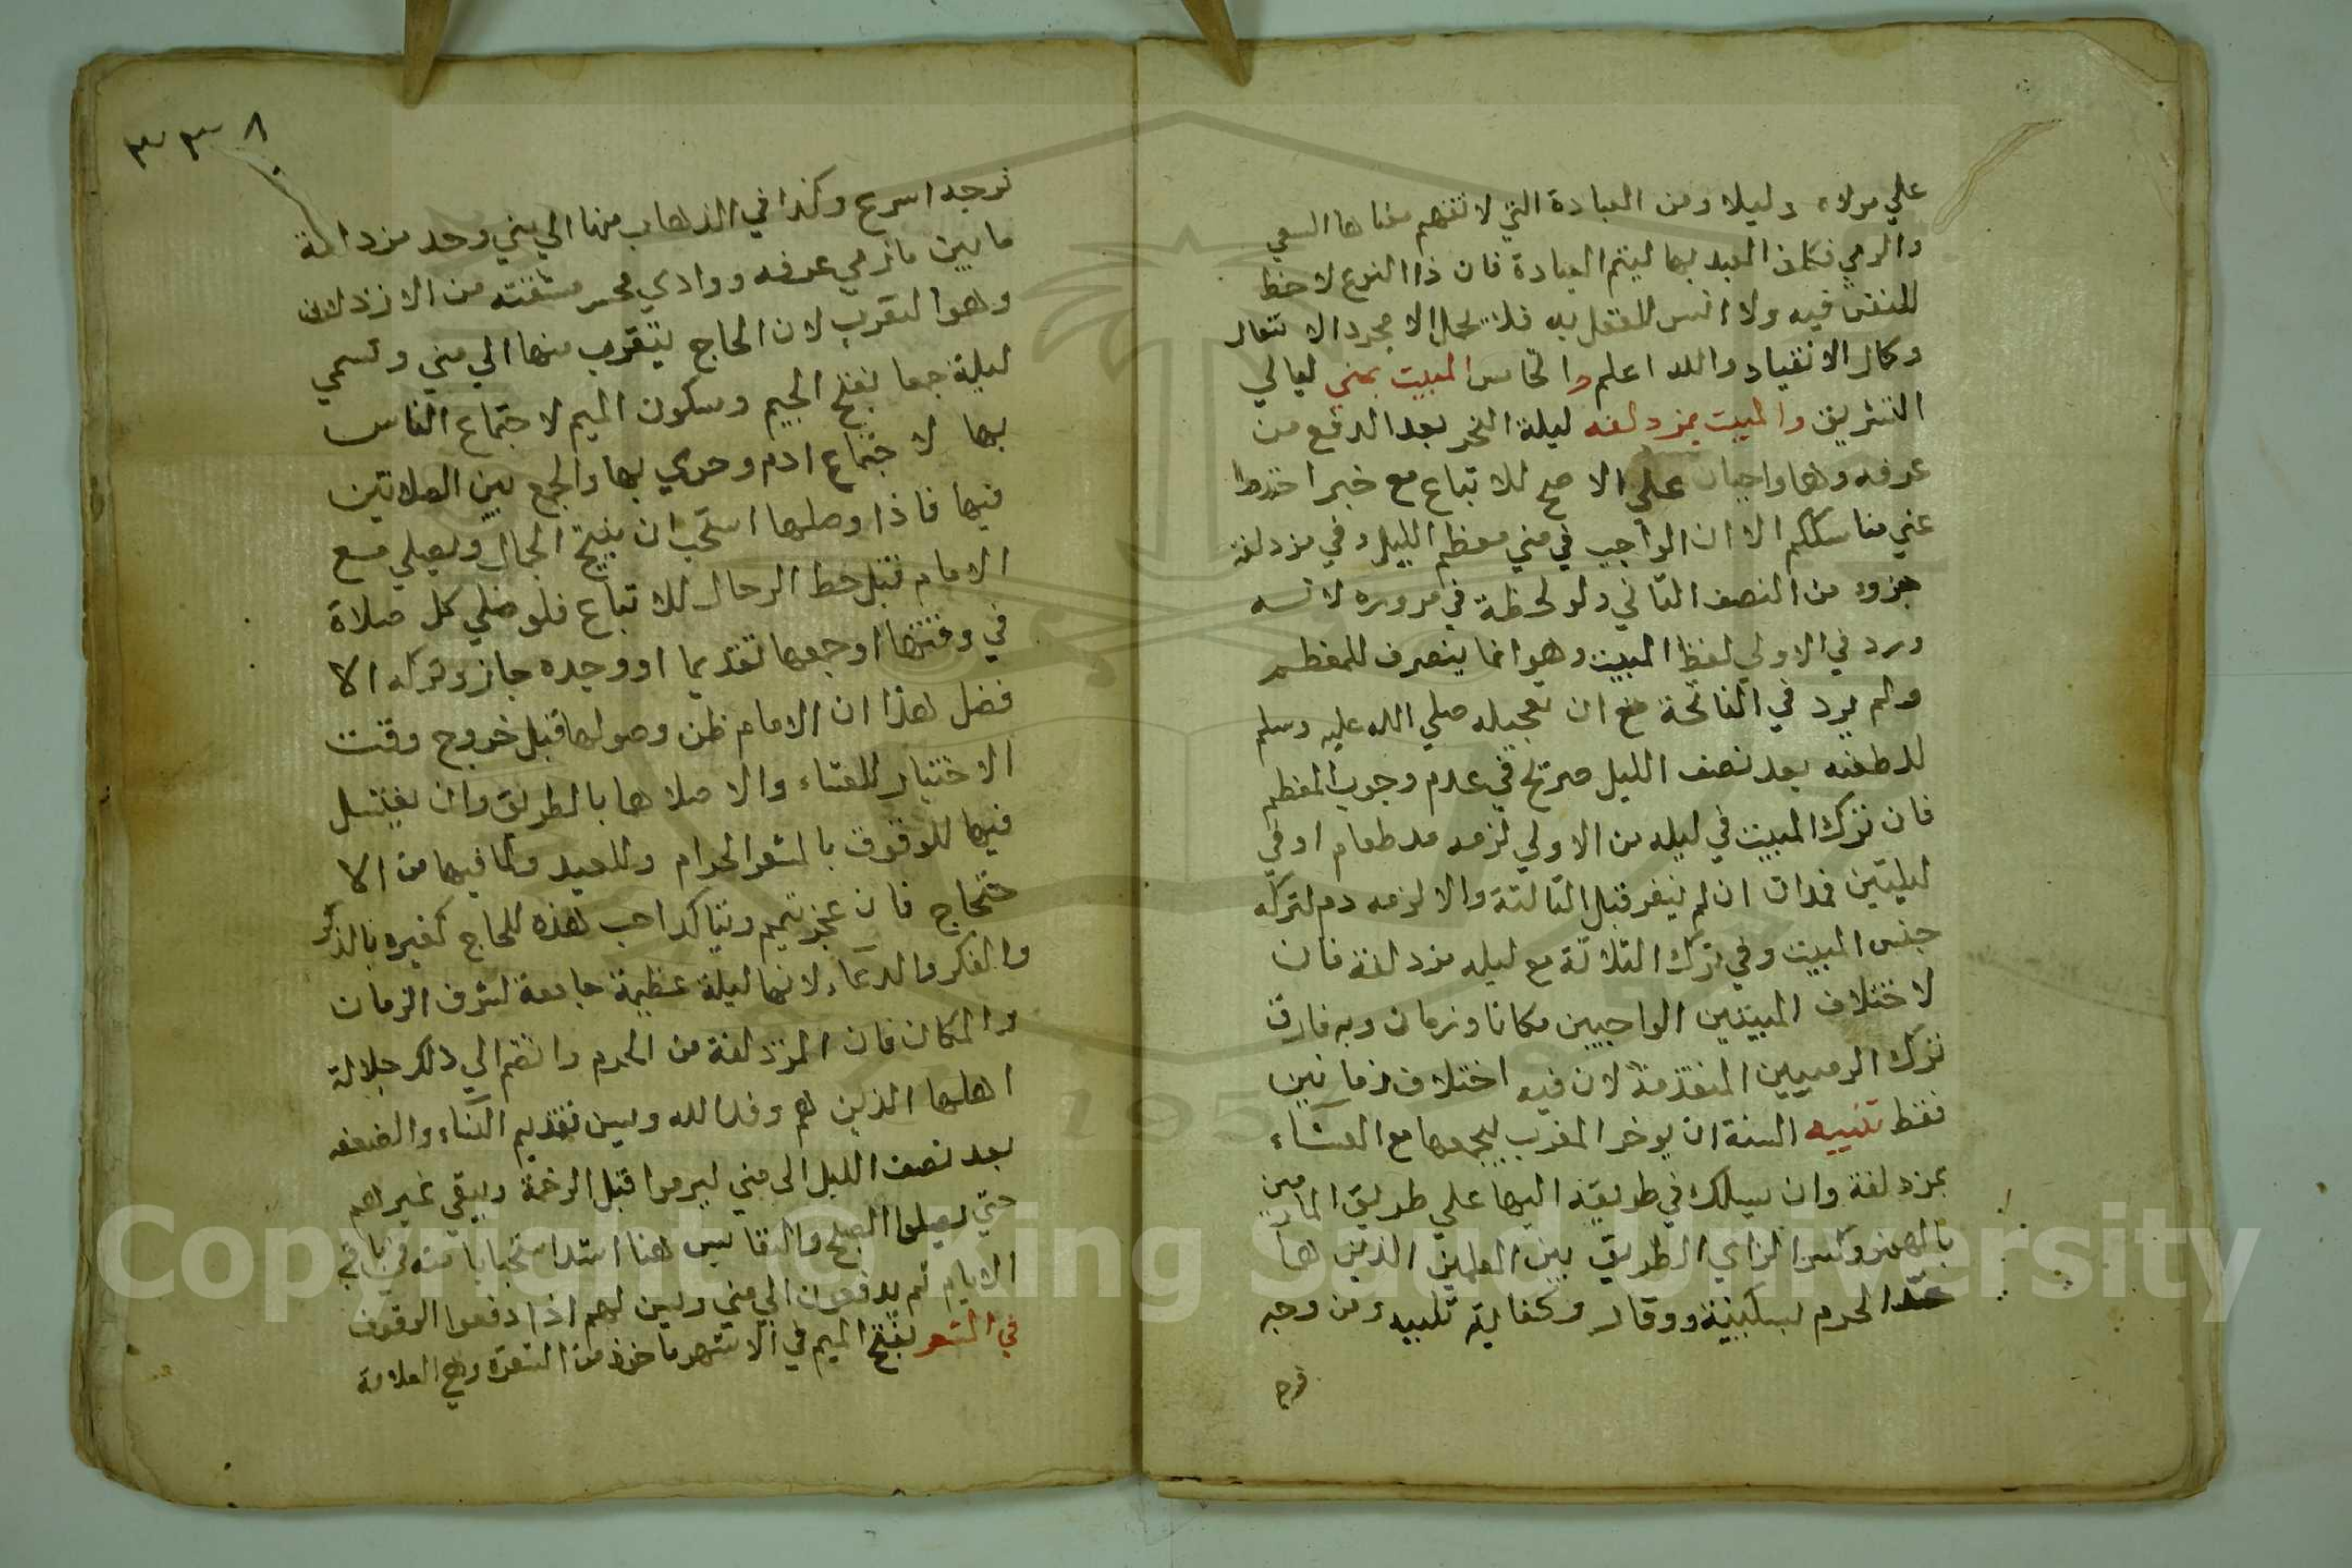 علي مولاه دليلا ومن العبادة التي لا تفهم معناها السعي
والرمي فكلف العبد بها ليتم العبادة فان ذا النوع لا حظ
للنفس فيه ولا انس للعقل به فلا يحمل الا مجرد الامتثال
وكمال الانقياد والله اعلم والخامس المبيت بمني ليالي
التشريق والمبيت بمزدلفه ليلة النحر بعد الدفع من
عرفه وهما واجبان علي الاصح للاتباع مع خبر اخذوا
عني مناسككم الا ان الواجب في مني معظم الليل وفي مزدلفة
جزوء من النصف الثاني ولو لحظة في مروره لانه
ورد في الاولي لفظ المبيت وهو انما ينصرف للمعظم
ولم يرد في الثانية مع ان تعجيله صلي الله عليه وسلم
للضعفه بعد نصف الليل صريح في عدم وجوب المعظم
فان ترك المبيت في ليله من الاولي لزمه مد طعام او في
ليلتين فمدان ان لم ينفر قبل الثالثة والا لزمه دم لتركه
جنس المبيت وفي ترك الثلاثة مع ليله مزدلفة فان
لاختلاف المبيتين الواجبين مكانا وزمان وبه فارق
ترك الرميين المتقدمة لان فيه اختلاف زمانين
فقط تنبيه السنة ان يوخر المغرب ليجمعها مع العشاء
بمزدلفة وان يسلك في طريقه اليها علي طريق المازمين
بالهمز وكسر الزاي الطريق بين العلمين الذين هما
حد الحرم بسكينة ووقار وكفاية تلبيه ومن وجد
فرجه
٣٣٨
توجد اسرع وكذا في الذهاب منها الي مني وحد مزدلفة
ما بين مازمي عرفه ووادي محسر مشتقته من الازدلاف
وهو التقرب لان الحاج يتقرب منها الي مني وتسمي
ليلة جمعا بفتح الجيم وسكون الميم لاجتماع الناس
بها لاجتماع ادم وحوي بها والجمع بين الصلاتين
فيها فاذا وصلها استحب ان ينيخ الجمال ويصلي مع
الامام قبل حط الرحال للاتباع فلو صلي كل صلاة
في وقتها او جمعها تقديما او وحده جاز وتركه الا
فضل هذا ان الامام ظن وصولها قبل خروج وقت
الاختيار للعشاء والا صلاها بالطريق وان يغتسل
فيها للوقوف بالمشعر الحرام وللعيد ولما فيها من الا
حتجاج فان عجز تيمم ويتاكد احب هذه للحاج كغيره بالذكر
والفكر والدعاء لانها ليلة عظيمة جامعة لشرف الزمان
والمكان فان المزدلفة من الحرم وانضم الي ذلك جلالة
اهلها الذين هم وفد الله وسن تقديم النساء والضعفه
بعد نصف الليل الى مني ليرموا قبل الزحمة ويبقي غيرهم
حتي يصلوا الصبح والتغليس هنا اشد استحبابا منه في باقي
الايام ثم يدفعون الي مني وسن لهم اذا دفعوا الوقوف
في المشعر بفتح الميم في الاشهر ماخوذ من الشعرة وهي العلامة
Copyright © King Saud University
195